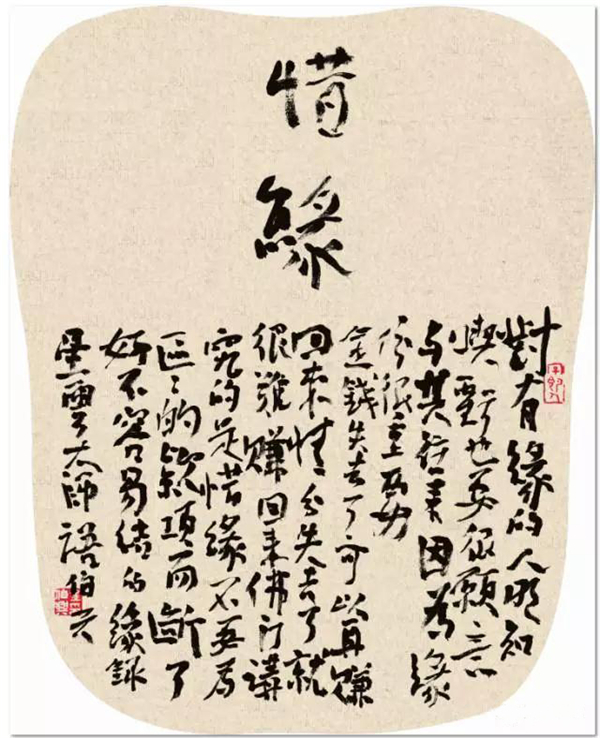 惜緣
對有緣的人明知
喫虧也要很願意
与其往来因為緣
份很重要
金錢失去了可以再賺
回来情分失去了就
很難賺回来佛门講
究的是惜緣不要為
區〻的款項而斷了
好不容易結的緣錄
星雲大師語伯